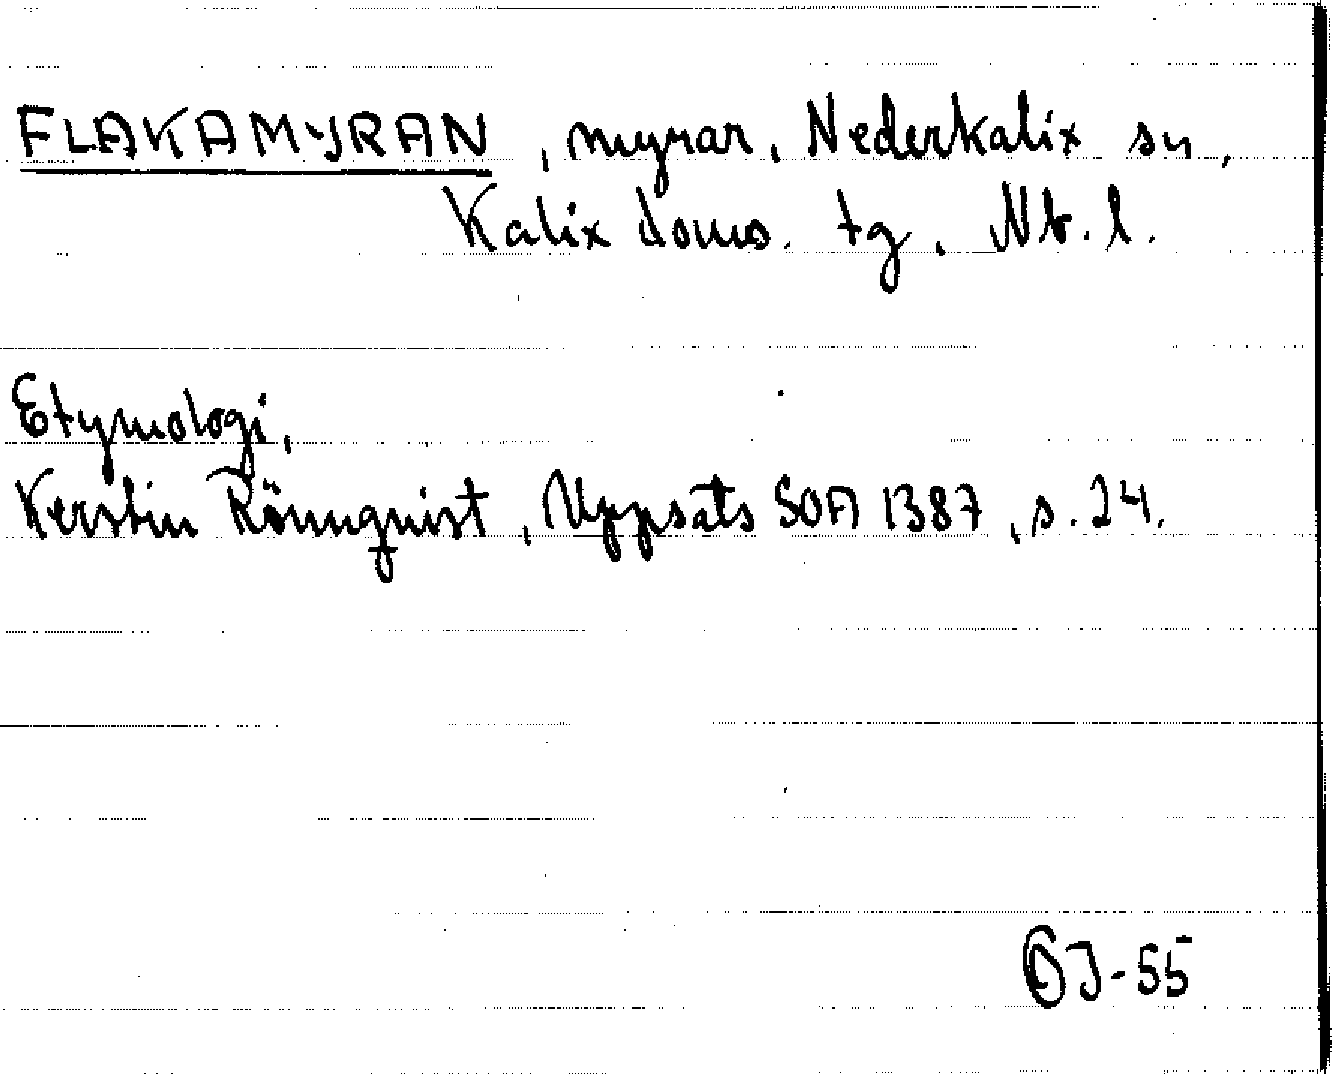 FLAKAMYRAN, myrar, Nederkalix sn,
Kalix doms. tg, Nb. l.
Etymologi,
Kerstin Rönnquist, Uppsats SOA 1387, s. 24.
J-55